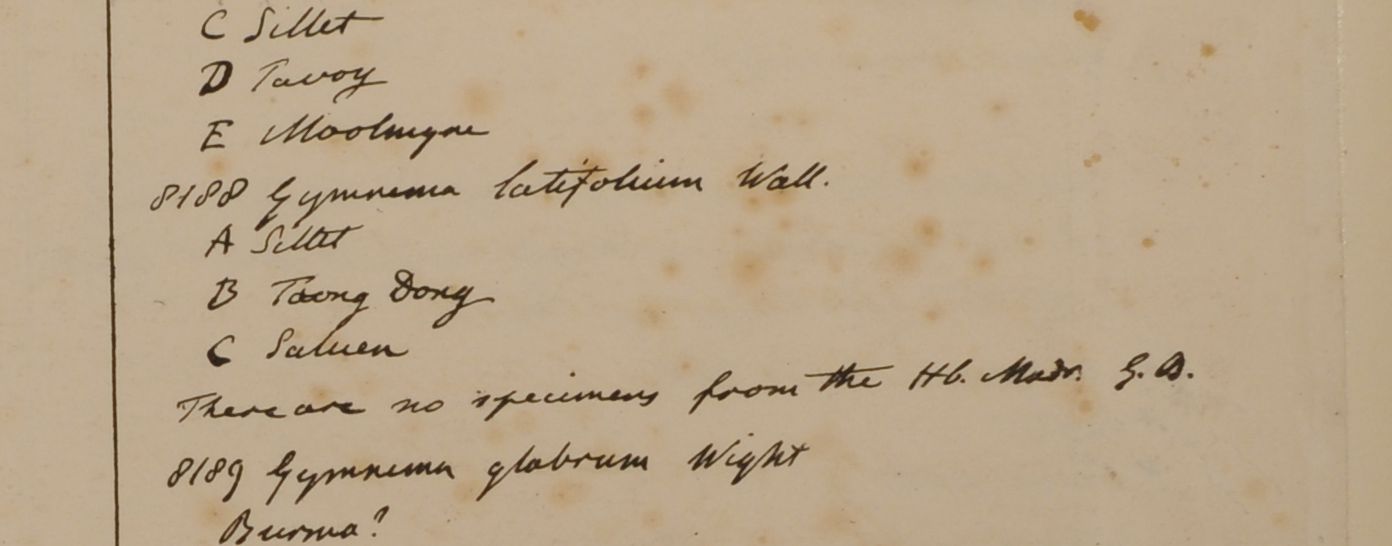 C Sillet
D Tavoy
E Moolmyne
8188 Gymnema latifolium Wall.
A Sillet
B Taong Dong
C Saluen
There are no specimens from the Hb. Madr. G. B.
8189 Gymnema glabrum Wight
Burma?